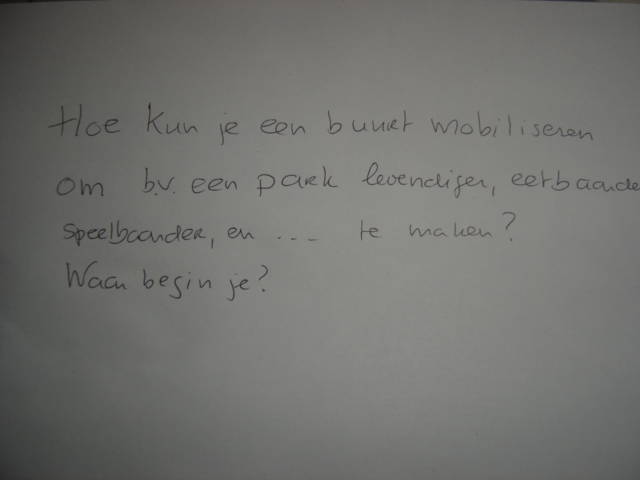 Hoe kun je een buurt mobiliseren
om b.v. een park levendiger, eetbaarder
speelbaarder, en ... te maken?
Waar begin je?